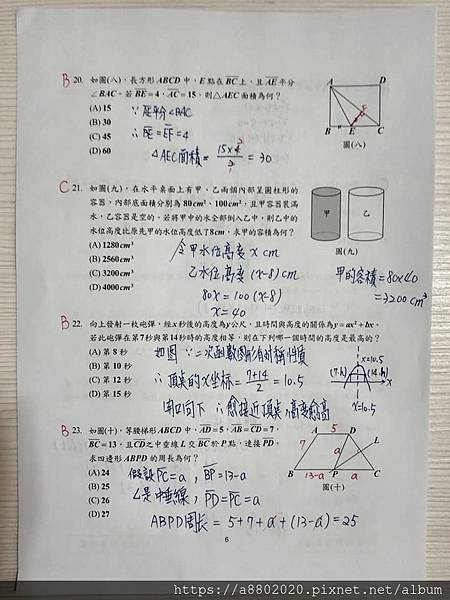 B 20. 如圖(八)，長方形ABCD中，E點在BC上，且AE平分
∠BAC。若BE=4，AC=15，則△AEC面積為何？
(A) 15
(B) 30
(C) 45
(D) 60
∵ AE平分∠BAC
∴ BE=EF=4
△AEC面積=15×4/2=30
A D
B E C
F
圖(八)
C 21. 如圖(九)，在水平桌面上有甲、乙兩個內部呈圓柱形的
容器，內部底面積分別為80cm²、100cm²，且甲容器裝滿
水，乙容器是空的。若將甲中的水全部倒入乙中，則乙中的
水位高度比原先甲的水位高度低了8cm，求甲的容積為何？
(A) 1280cm³
(B) 2560cm³
(C) 3200cm³
(D) 4000cm³
令甲水位高度 x cm
乙水位高度 (x-8) cm
80x=100(x-8)
x=40
甲 乙
圖(九)
甲的容積=80×40
=3200 cm³
B 22. 向上發射一枚砲彈，經x秒後的高度為y公尺，且時間與高度的關係為y=ax²+bx。
若此砲彈在第7秒與第14秒時的高度相等，則在下列哪一個時間的高度是最高的？
(A) 第8秒
(B) 第10秒
(C) 第12秒
(D) 第15秒
如圖 ∵二次函數圖形有對稱性質
∴頂點的x坐標=7+14/2=10.5
開口向下 ∴愈接近頂點，高度愈高
x=10.5
(7,h) (14,h)
x
x=10.5
B 23. 如圖(十)，等腰梯形ABCD中，AD=5，AB=CD=7，
BC=13，且CD之中垂線L交BC於P點，連接PD。
求四邊形ABPD的周長為何？
(A) 24
(B) 25
(C) 26
(D) 27
假設PC=a，BP=13-a
L是中垂線，PD=PC=a
ABPD周長=5+7+a+(13-a)=25
A 5 D
7 a L
B 13-a P a C
圖(十)
6
https://a8802020.pixnet.net/album